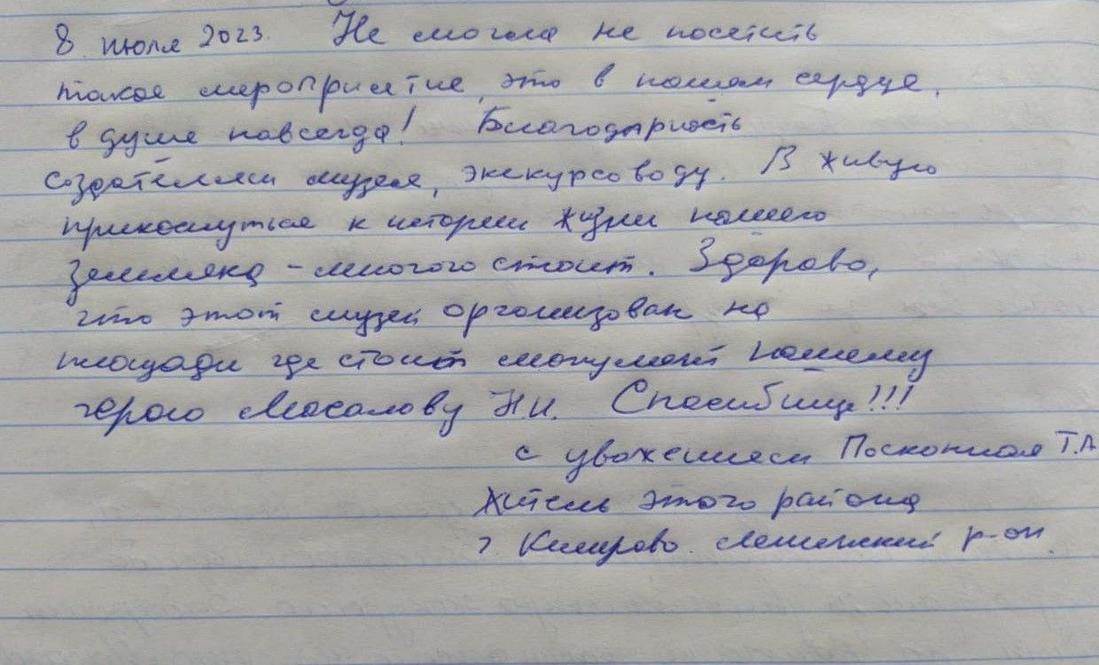 8 июля 2023. Не могла не посетить
такое мероприятие, это в нашем сердце,
в душе навсегда! Благодарность
создателям музея, экскурсоводу. В живую
прикоснуться к истории жизни нашего
земляка - многого стоит. Здорово,
что этот музей организован на
площади где стоит монумент нашему
герою Масалову Н.И. Спасибище!!!
с уважением Посконная Т.А
житель этого района
г. Кемерово. Ленинский р-он.